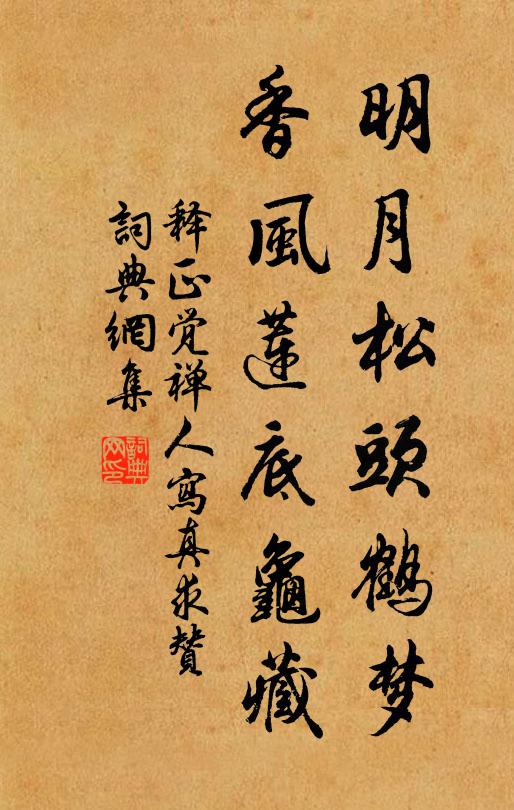 明月松頭鹤梦
香風蓮底龜藏
释正觉禅人寫真求賛
詞典網集
詞典网印